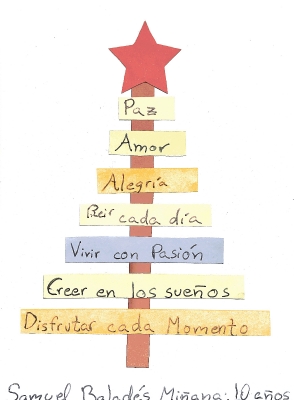 Paz
Amor
Alegría
Reir cada día
Vivir con Pasión
Creer en los sueños
Disfrutar cada Momento
Samuel Baladés Miñana: 10 años